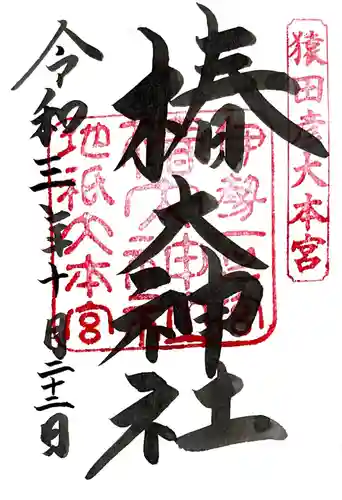 猿田彦大本宮
椿大神社
伊勢一之宮
椿大神社
地祇大本宮
令和三年十月二十二日